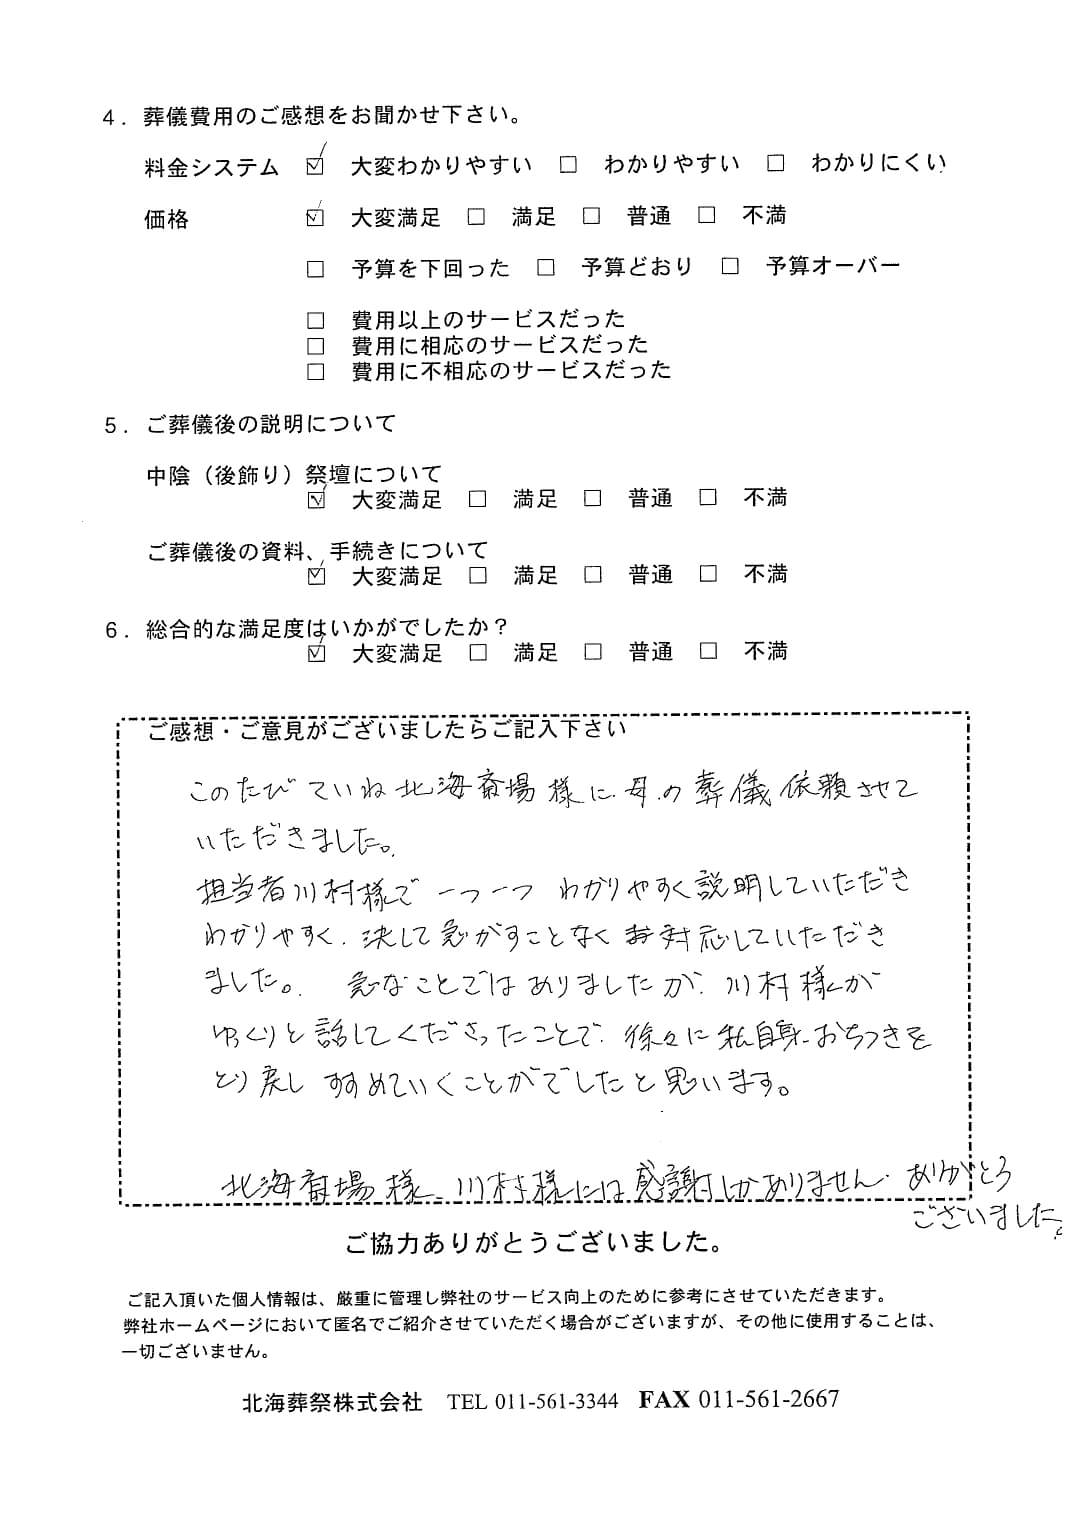 4．葬儀費用のご感想をお聞かせ下さい。
料金システム ☑ 大変わかりやすい □ わかりやすい □ わかりにくい
価格 ☑ 大変満足 □ 満足 □ 普通 □ 不満
□ 予算を下回った □ 予算どおり □ 予算オーバー
□ 費用以上のサービスだった
□ 費用に相応のサービスだった
□ 費用に不相応のサービスだった
5．ご葬儀後の説明について
中陰（後飾り）祭壇について
☑ 大変満足 □ 満足 □ 普通 □ 不満
ご葬儀後の資料、手続きについて
☑ 大変満足 □ 満足 □ 普通 □ 不満
6．総合的な満足度はいかがでしたか？
☑ 大変満足 □ 満足 □ 普通 □ 不満
ご感想・ご意見がございましたらご記入下さい
このたびていね北海斎場様に、母の葬儀依頼させて
いただきました。
担当者川村様で 一つ一つ わかりやすく説明していただき
わかりやすく、決して急がすことなくお対応していただき
ました。 急なことではありましたが、川村様が
ゆっくりと話してくださったことで、徐々に私自身おちつきを
とり戻し すすめていくことがでしたと思います。
北海斎場様、川村様には感謝しかありません。ありがとう
ございました。
ご協力ありがとうございました。
ご記入頂いた個人情報は、厳重に管理し弊社のサービス向上のために参考にさせていただきます。
弊社ホームページにおいて匿名でご紹介させていただく場合がございますが、その他に使用することは、
一切ございません。
北海葬祭株式会社 TEL 011-561-3344 FAX 011-561-2667